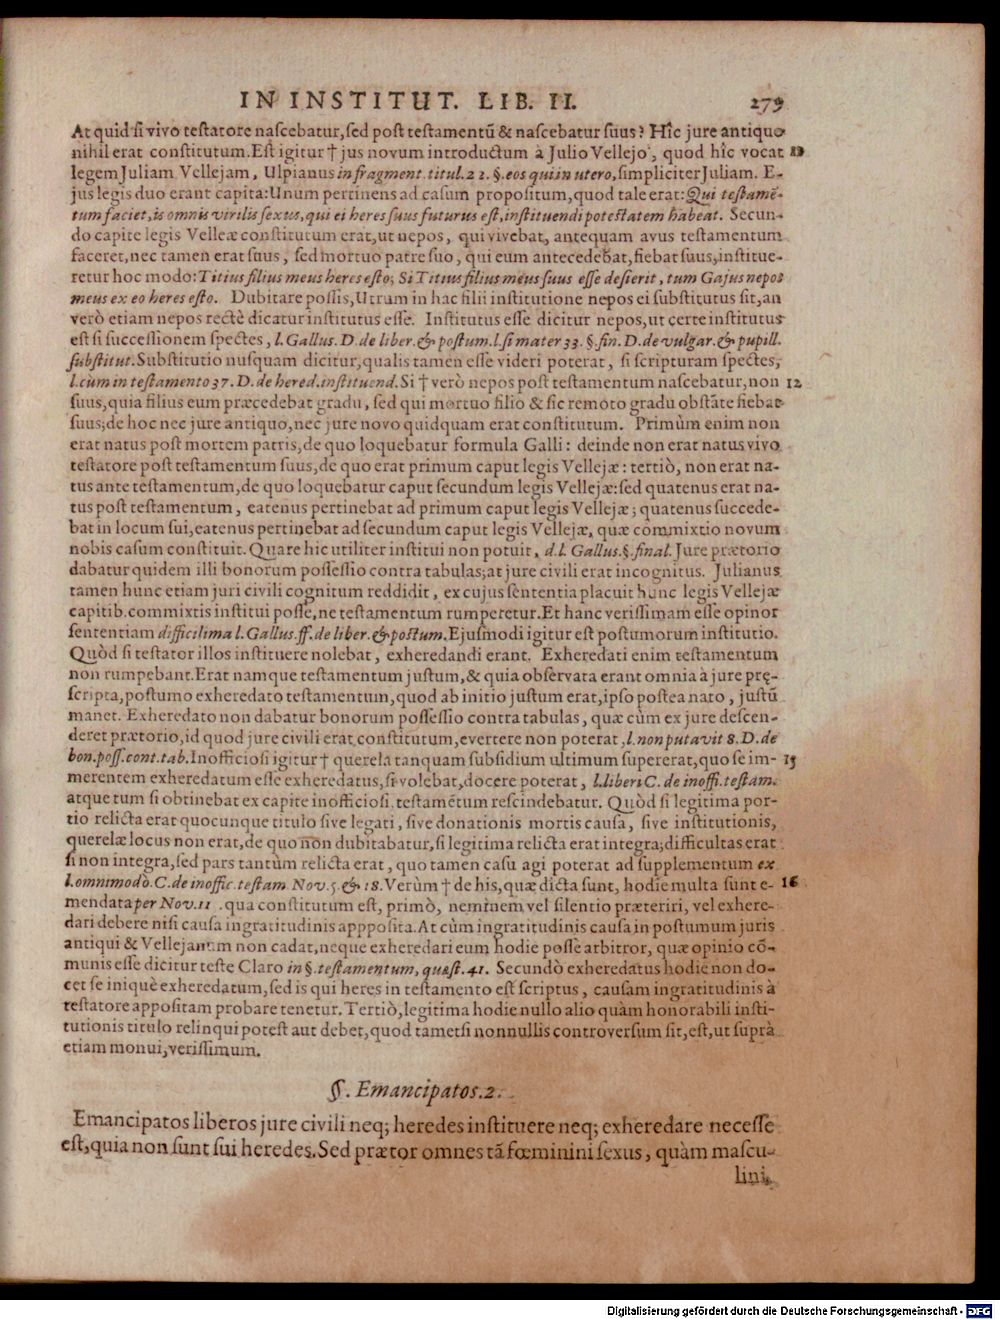 IN INSTITUT. LIB. II. 279
At quid si vivo testatore nascebatur, sed post testamentũ & nascebatur suus? Hîc jure antiquo
nihil erat constitutum. Est igitur † jus novum introductum à Julio Vellejo, quod hîc vocat
legem Juliam Vellejam, Ulpianus in fragment. titul. 22. §. eos qui in utero, simpliciter Juliam. E-
jus legis duo erant capita: Unum pertinens ad casum propositum, quod tale erat: Qui testamẽ-
tum faciet, is omnis virilis sexus, qui ei heres suus futurus est, instituendi potestatem habeat. Secun-
do capite legis Velleæ constitutum erat, ut nepos, qui vivebat, antequam avus testamentum
faceret, nec tamen erat suus, sed mortuo patre suo, qui eum antecedebat, fiebat suus, institue-
retur hoc modo: Titius filius meus heres esto; Si Titius filius meus suus esse desierit, tum Gajus nepos
meus ex eo heres esto. Dubitare possis, Utrum in hac filii institutione nepos ei substitutus sit, an
verò etiam nepos rectè dicatur institutus esse. Institutus esse dicitur nepos, ut certe institutus
est si successionem spectes, l. Gallus. D. de liber. & postum. l. si mater 33. §. fin. D. de vulgar. & pupill.
substitut. Substitutio nusquam dicitur, qualis tamen esse videri poterat, si scripturam spectes,
l. cùm in testamento 37. D. de hered. instituend. Si † verò nepos post testamentum nascebatur, non 12
suus, quia filius eum præcedebat gradu, sed qui mortuo filio & sic remoto gradu obstãte fiebat
suus; de hoc nec jure antiquo, nec jure novo quidquam erat constitutum. Primùm enim non
erat natus post mortem patris, de quo loquebatur formula Galli: deinde non erat natus vivo
testatore post testamentum suus, de quo erat primum caput legis Vellejæ: tertiò, non erat na-
tus ante testamentum, de quo loquebatur caput secundum legis Vellejæ: sed quatenus erat na-
tus post testamentum, eatenus pertinebat ad primum caput legis Vellejæ; quatenus succede-
bat in locum sui, eatenus pertinebat ad secundum caput legis Vellejæ, quæ commixtio novum
nobis casum constituit. Quare hic utiliter institui non potuit, d. l. Gallus. §. final. Jure prætorio
dabatur quidem illi bonorum possessio contra tabulas; at jure civili erat incognitus. Julianus
tamen hunc etiam juri civili cognitum reddidit, ex cujus sententia placuit hunc legis Vellejæ
capitib. commixtis institui posse, ne testamentum rumperetur. Et hanc verissimam esse opinor
sententiam difficilima l. Gallus. ff. de liber. & postum. Ejusmodi igitur est postumorum institutio.
Quòd si testator illos instituere nolebat, exheredandi erant. Exheredati enim testamentum
non rumpebant. Erat namque testamentum justum, & quia observata erant omnia à jure pręscripta
, postumo exheredato testamentum, quod ab initio justum erat, ipso postea nato, justũ
manet. Exheredato non dabatur bonorum possessio contra tabulas, quæ cùm ex jure descen-
deret prætorio, id quod jure civili erat constitutum, evertere non poterat, l. non putavit 8. D. de
bon. poss. cont. tab. Inofficiosi igitur † querela tanquam subsidium ultimum supererat, quo se im- 15
merentem exheredatum esse exheredatus, si volebat, docere poterat, l. liberi C. de inoffi. testam.
atque tum si obtinebat ex capite inofficiosi testamẽtum rescindebatur. Quòd si legitima por-
tio relicta erat quocunque titulo sive legati, sive donationis mortis causa, sive institutionis,
querelæ locus non erat, de quo non dubitabatur, si legitima relicta erat integra; difficultas erat
si non integra, sed pars tantùm relicta erat, quo tamen casu agi poterat ad supplementum ex
l. omnimodò. C. de inoffic. testam. Nov. 5. & 18. Verùm † de his, quæ dicta sunt, hodie multa sunt e- 16
mendata per Nov. 11 . qua constitutum est, primò, neminem vel silentio præteriri, vel exhere-
dari debere nisi causa ingratitudinis appposita. At cùm ingratitudinis causa in postumum juris
antiqui & Vellejanum non cadat, neque exheredari eum hodie posse arbitror, quæ opinio cõ-
munis esse dicitur teste Claro in §. testamentum, quæst. 41. Secundò exheredatus hodie non do-
cet se iniquè exheredatum, sed is qui heres in testamento est scriptus, causam ingratitudinis à
testatore appositam probare tenetur. Tertiò, legitima hodie nullo alio quàm honorabili insti-
tutionis titulo relinqui potest aut debet, quod tametsi nonnullis controversum sit, est, ut suprà
etiam monui, verissimum.
§. Emancipatos. 2.
Emancipatos liberos jure civili neq; heredes instituere neq; exheredare necesse
est, quia non sunt sui heredes. Sed prætor omnes tã fœminini sexus, quàm mascu-
lini,
Digitalisierung gefördert durch die Deutsche Forschungsgemeinschaft - DFG